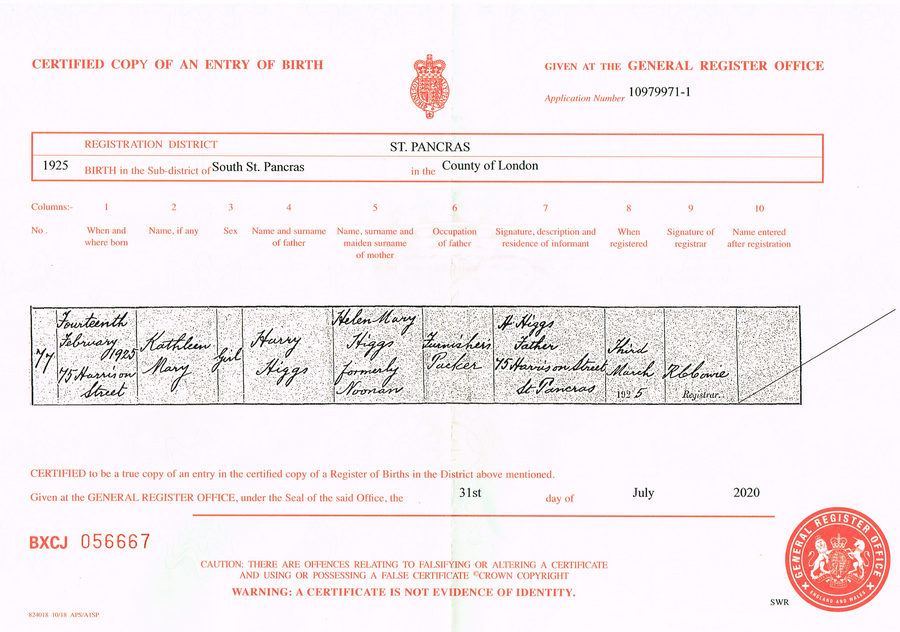 CERTIFIED COPY OF AN ENTRY OF BIRTH
GIVEN AT THE GENERAL REGISTER OFFICE
Application Number 10979971-1
REGISTRATION DISTRICT ST. PANCRAS
1925 BIRTH in the Sub-district of South St. Pancras in the County of London
Columns:- 1 2 3 4 5 6 7 8 9 10
No. When and where born
Name, if any
Sex
Name and surname of father
Name, surname and maiden surname of mother
Occupation of father
Signature, description and residence of informant
When registered
Signature of registrar
Name entered after registration
77
Fourteenth
February
1925
75 Harrison
Street
Kathleen
Mary
Girl
Harry
Higgs
Helen Mary
Higgs
formerly
Noonan
Furnishers
Packer
H Higgs
Father
75 Harrison Street
St. Pancras
Third
March
1925
Registrar.
CERTIFIED to be a true copy of an entry in the certified copy of a Register of Births in the District above mentioned.
Given at the GENERAL REGISTER OFFICE, under the Seal of the said Office, the 31st day of July 2020
BXCJ 056667
CAUTION: THERE ARE OFFENCES RELATING TO FALSIFYING OR ALTERING A CERTIFICATE
AND USING OR POSSESSING A FALSE CERTIFICATE ©CROWN COPYRIGHT
WARNING: A CERTIFICATE IS NOT EVIDENCE OF IDENTITY.
GENERAL REGISTER OFFICE
ENGLAND AND WALES
SWR
824018 10/18 APS/A1SP